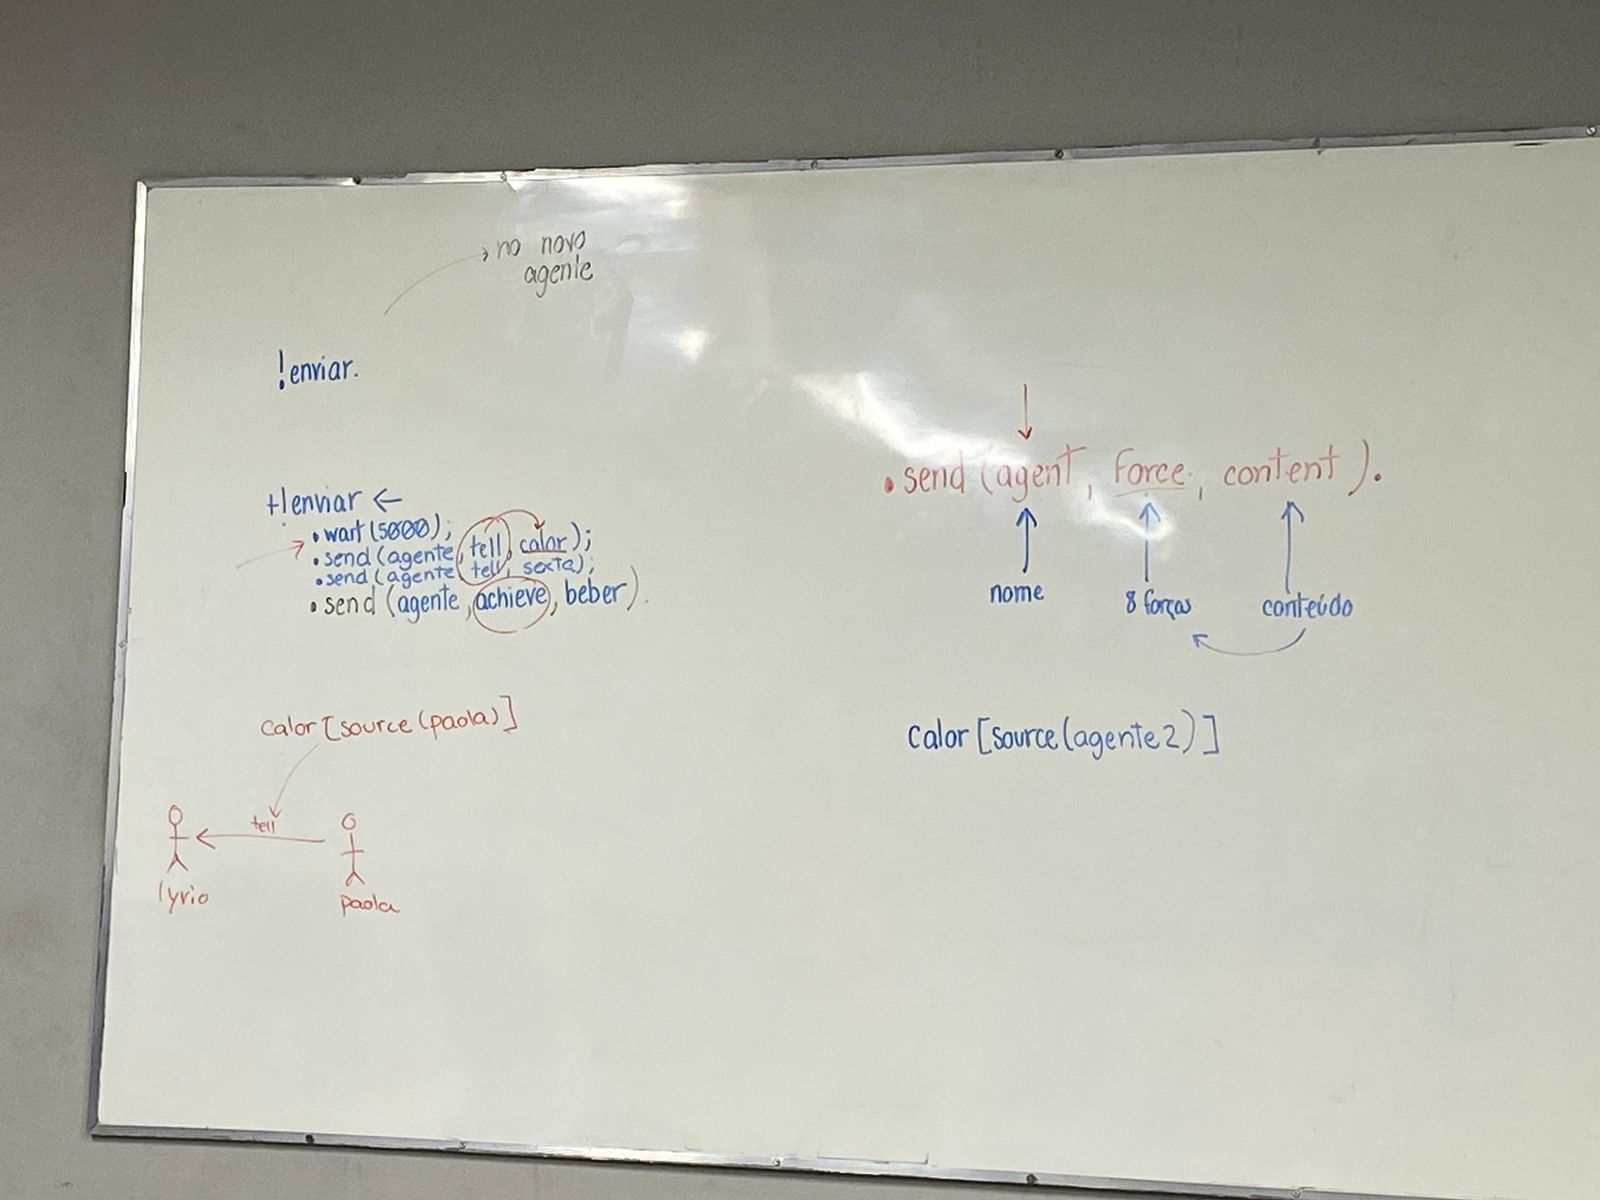 no novo
agente
!enviar.
+!enviar <-
.wait(5000);
.send(agente, tell, calor);
.send(agente, tell, sexta);
.send(agente, achieve, beber).
calor[source(paola)]
tell
lyrio
paola
.send(agent, force, content).
nome
8 forças
conteúdo
calor[source(agente2)]